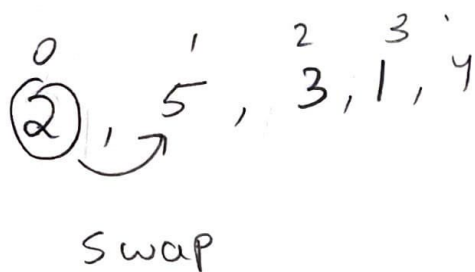 0 1 2 3
2, 5, 3, 1, 4
swap